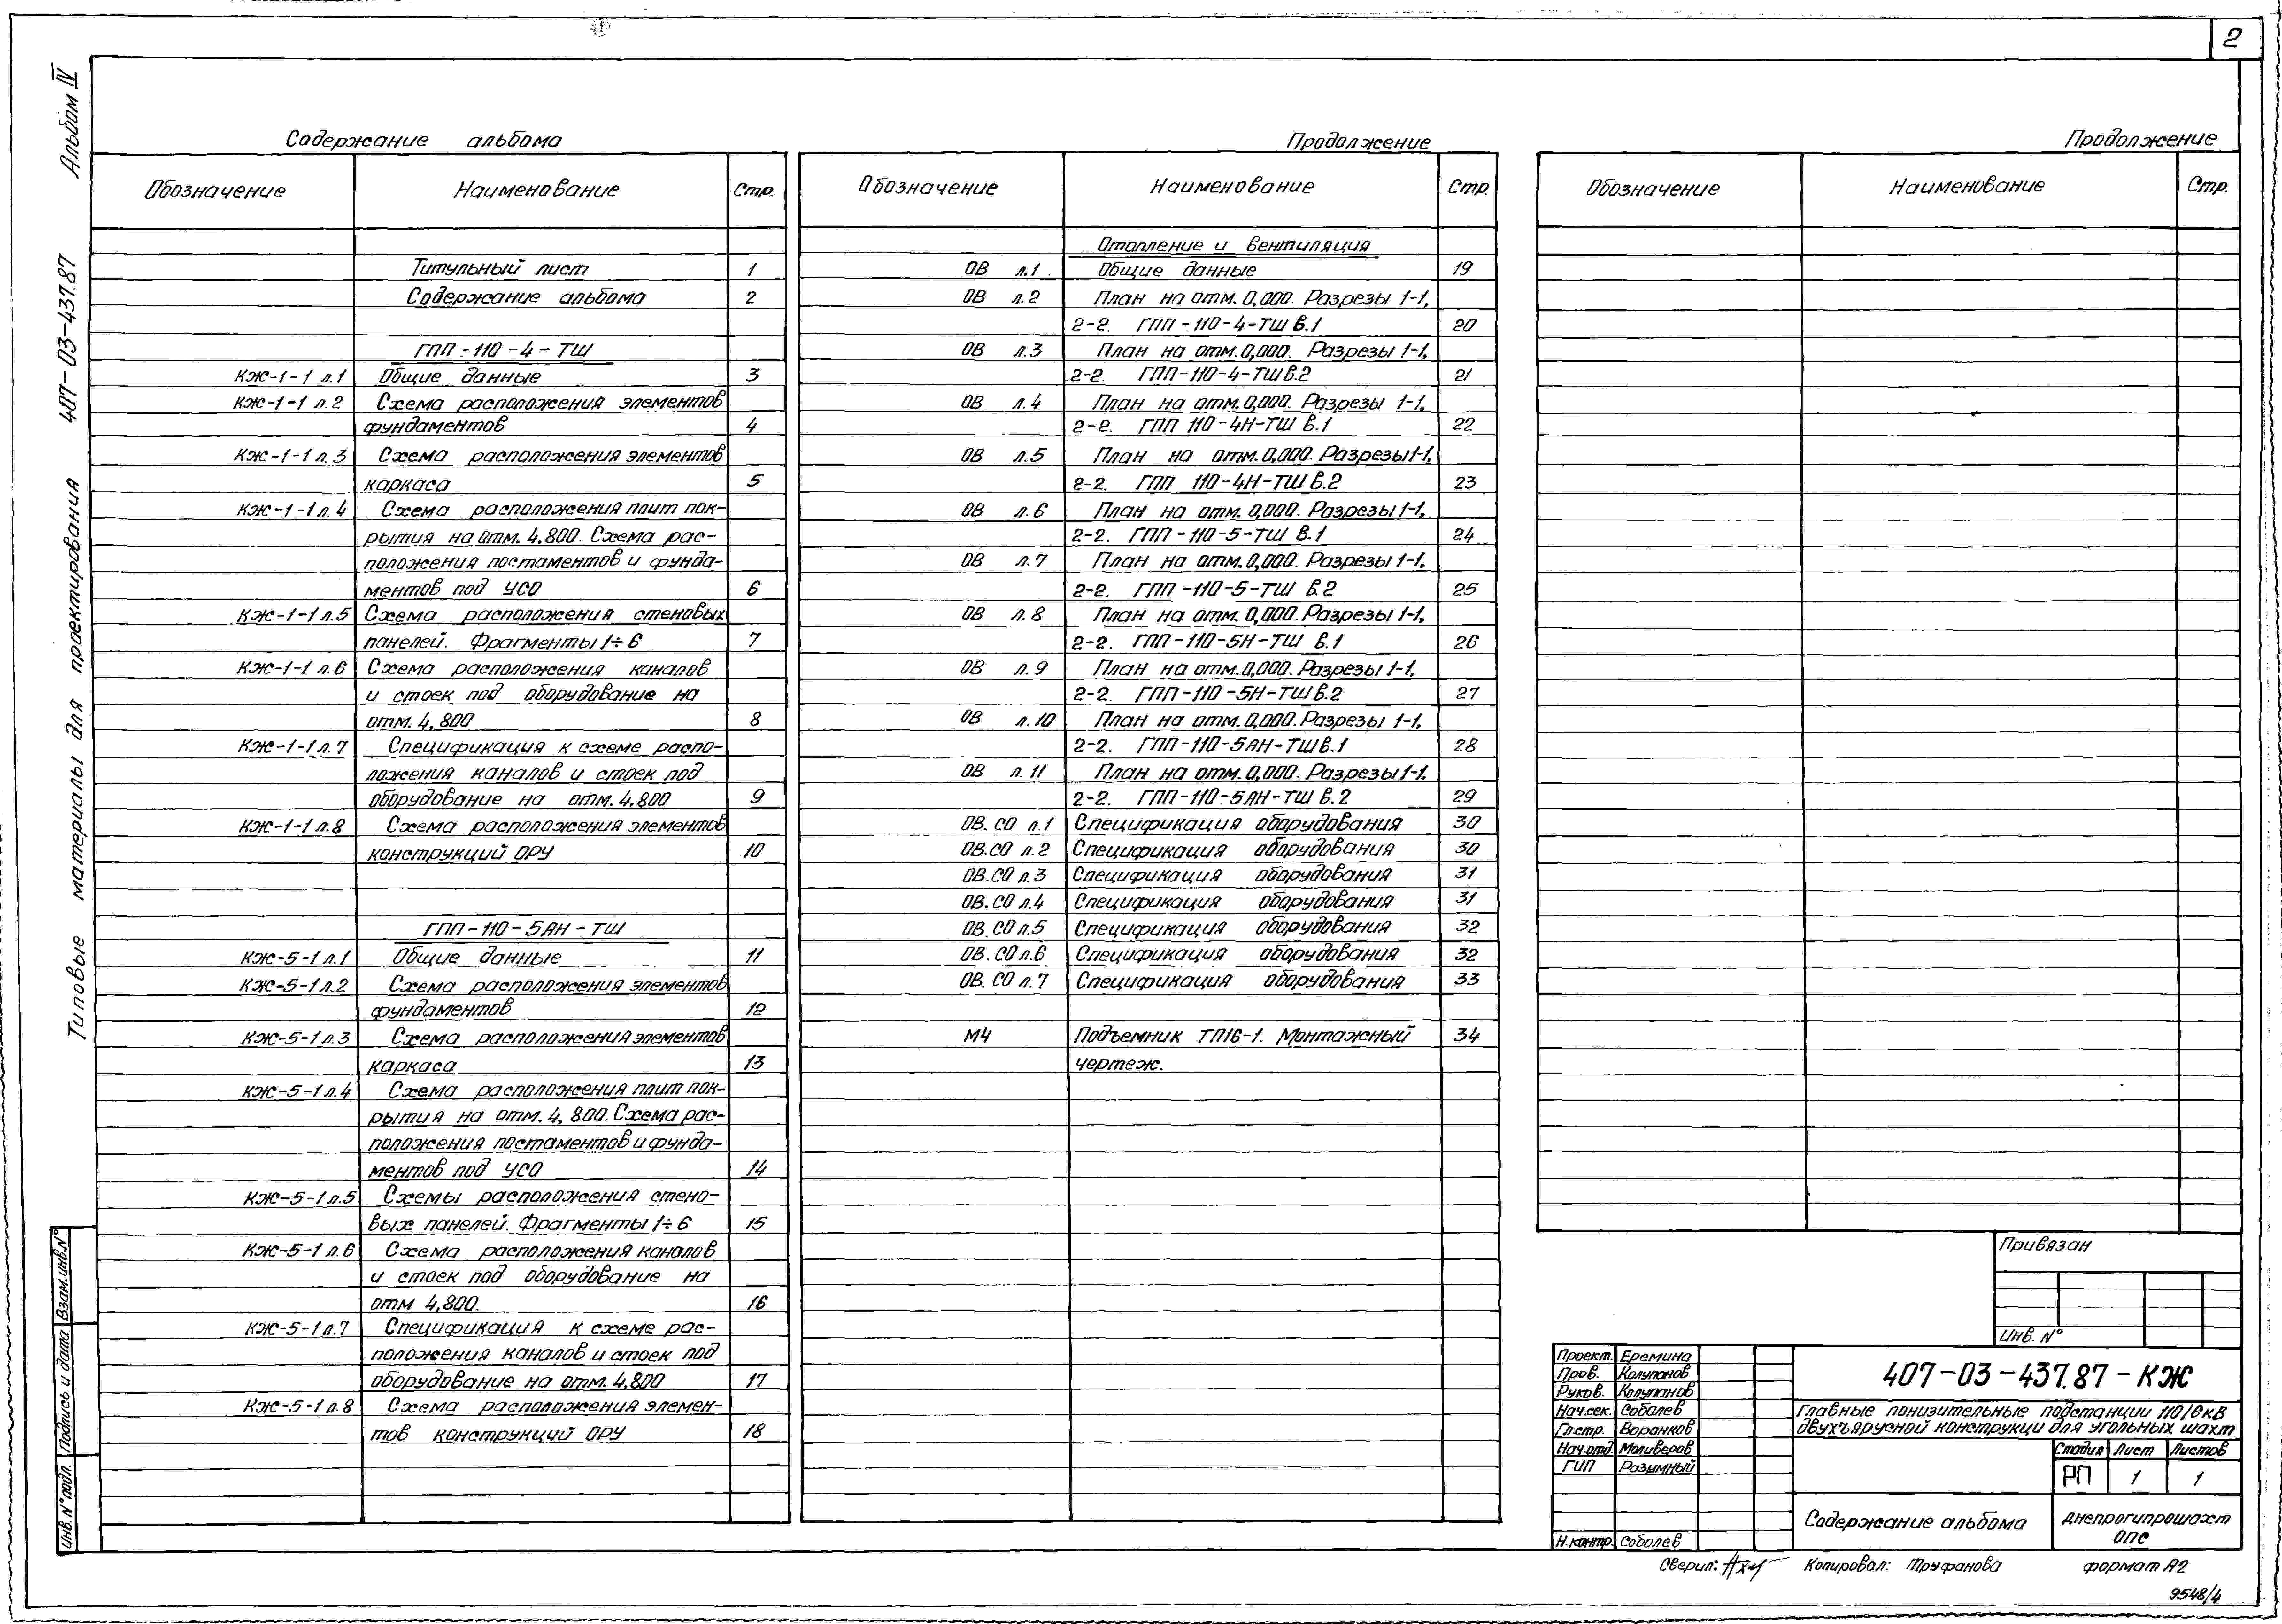 2
Альбом IV
407-03-437.87
Типовые материалы для проектирования
Содержание альбома
Обозначение Наименование Стр.
Титульный лист 1
Содержание альбома 2
ГПП-110-4-ТШ
КЖ-1-1 л.1 Общие данные 3
КЖ-1-1 л.2 Схема расположения элементов
фундаментов 4
КЖ-1-1 л.3 Схема расположения элементов
каркаса 5
КЖ-1-1 л.4 Схема расположения плит пок-
рытия на отм. 4,800. Схема рас-
положения постаментов и фунда-
ментов под УСО 6
КЖ-1-1 л.5 Схема расположения стеновых
панелей. Фрагменты 1÷6 7
КЖ-1-1 л.6 Схема расположения каналов
и стоек под оборудование на
отм. 4,800 8
КЖ-1-1 л.7 Спецификация к схеме распо-
ложения каналов и стоек под
оборудование на отм. 4,800 9
КЖ-1-1 л.8 Схема расположения элементов
конструкций ОРУ 10
ГПП-110-5АН-ТШ
КЖ-5-1 л.1 Общие данные 11
КЖ-5-1 л.2 Схема расположения элементов
фундаментов 12
КЖ-5-1 л.3 Схема расположения элементов
каркаса 13
КЖ-5-1 л.4 Схема расположения плит пок-
рытия на отм. 4,800. Схема рас-
положения постаментов и фунда-
ментов под УСО 14
КЖ-5-1 л.5 Схемы расположения стено-
вых панелей. Фрагменты 1÷6 15
КЖ-5-1 л.6 Схема расположения каналов
и стоек под оборудование на
отм 4,800. 16
КЖ-5-1 л.7 Спецификация к схеме рас-
положения каналов и стоек под
оборудование на отм. 4,800 17
КЖ-5-1 л.8 Схема расположения элемен-
тов конструкций ОРУ 18
Продолжение
Обозначение Наименование Стр.
Отопление и вентиляция
ОВ л.1 Общие данные 19
ОВ л.2 План на отм. 0,000. Разрезы 1-1,
2-2. ГПП-110-4-ТШ в.1 20
ОВ л.3 План на отм. 0,000. Разрезы 1-1,
2-2. ГПП-110-4-ТШ в.2 21
ОВ л.4 План на отм. 0,000. Разрезы 1-1,
2-2. ГПП 110-4Н-ТШ в.1 22
ОВ л.5 План на отм. 0,000. Разрезы 1-1,
2-2. ГПП 110-4Н-ТШ в.2 23
ОВ л.6 План на отм. 0,000. Разрезы 1-1,
2-2. ГПП-110-5-ТШ в.1 24
ОВ л.7 План на отм. 0,000. Разрезы 1-1,
2-2. ГПП-110-5-ТШ в.2 25
ОВ л.8 План на отм. 0,000. Разрезы 1-1,
2-2. ГПП-110-5Н-ТШ в.1 26
ОВ л.9 План на отм. 0,000. Разрезы 1-1,
2-2. ГПП-110-5Н-ТШ в.2 27
ОВ л.10 План на отм. 0,000. Разрезы 1-1,
2-2. ГПП-110-5АН-ТШ в.1 28
ОВ л.11 План на отм. 0,000. Разрезы 1-1.
2-2. ГПП-110-5АН-ТШ в.2 29
ОВ.СО л.1 Спецификация оборудования 30
ОВ.СО л.2 Спецификация оборудования 30
ОВ.СО л.3 Спецификация оборудования 31
ОВ.СО л.4 Спецификация оборудования 31
ОВ.СО л.5 Спецификация оборудования 32
ОВ.СО л.6 Спецификация оборудования 32
ОВ.СО л.7 Спецификация оборудования 33
М4 Подъемник ТП16-1. Монтажный 34
чертеж.
Продолжение
Обозначение Наименование Стр.
Привязан
Инв. №
Проект. Еремина
Пров. Колупанов
Руков. Колупанов
Нач.сек. Соболев
Гл.стр. Воронков
Нач.отд. Моливеров
ГИП Разумный
Н.контр. Соболев
407-03-437.87-КЖ
Главные понизительные подстанции 110/6кВ
двухъярусной конструкци для угольных шахт
Стадия Лист Листов
РП 1 1
Содержание альбома
Днепрогипрошахт
ОПС
Сверил: Копировал: Труфанова формат А2
9548/4
Взам.инв.№
Подпись и дата
Инв.№ подл.